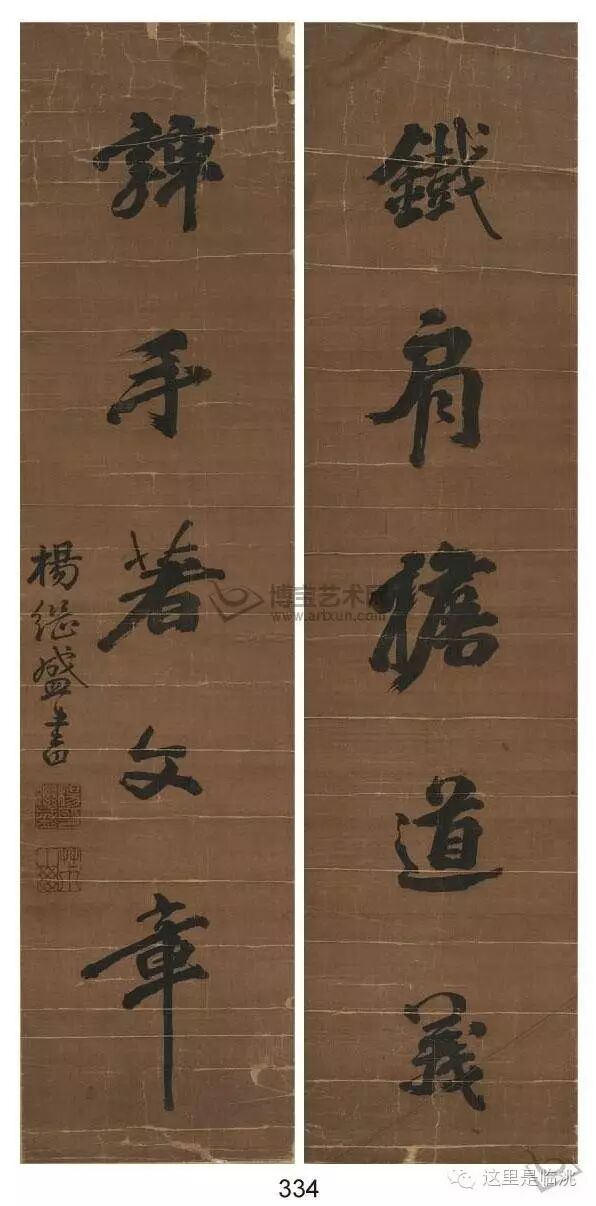 鐵肩擔道義
辣手著文章
楊繼盛書
博宝艺术网
www.artxun.com
334
这里是临洮